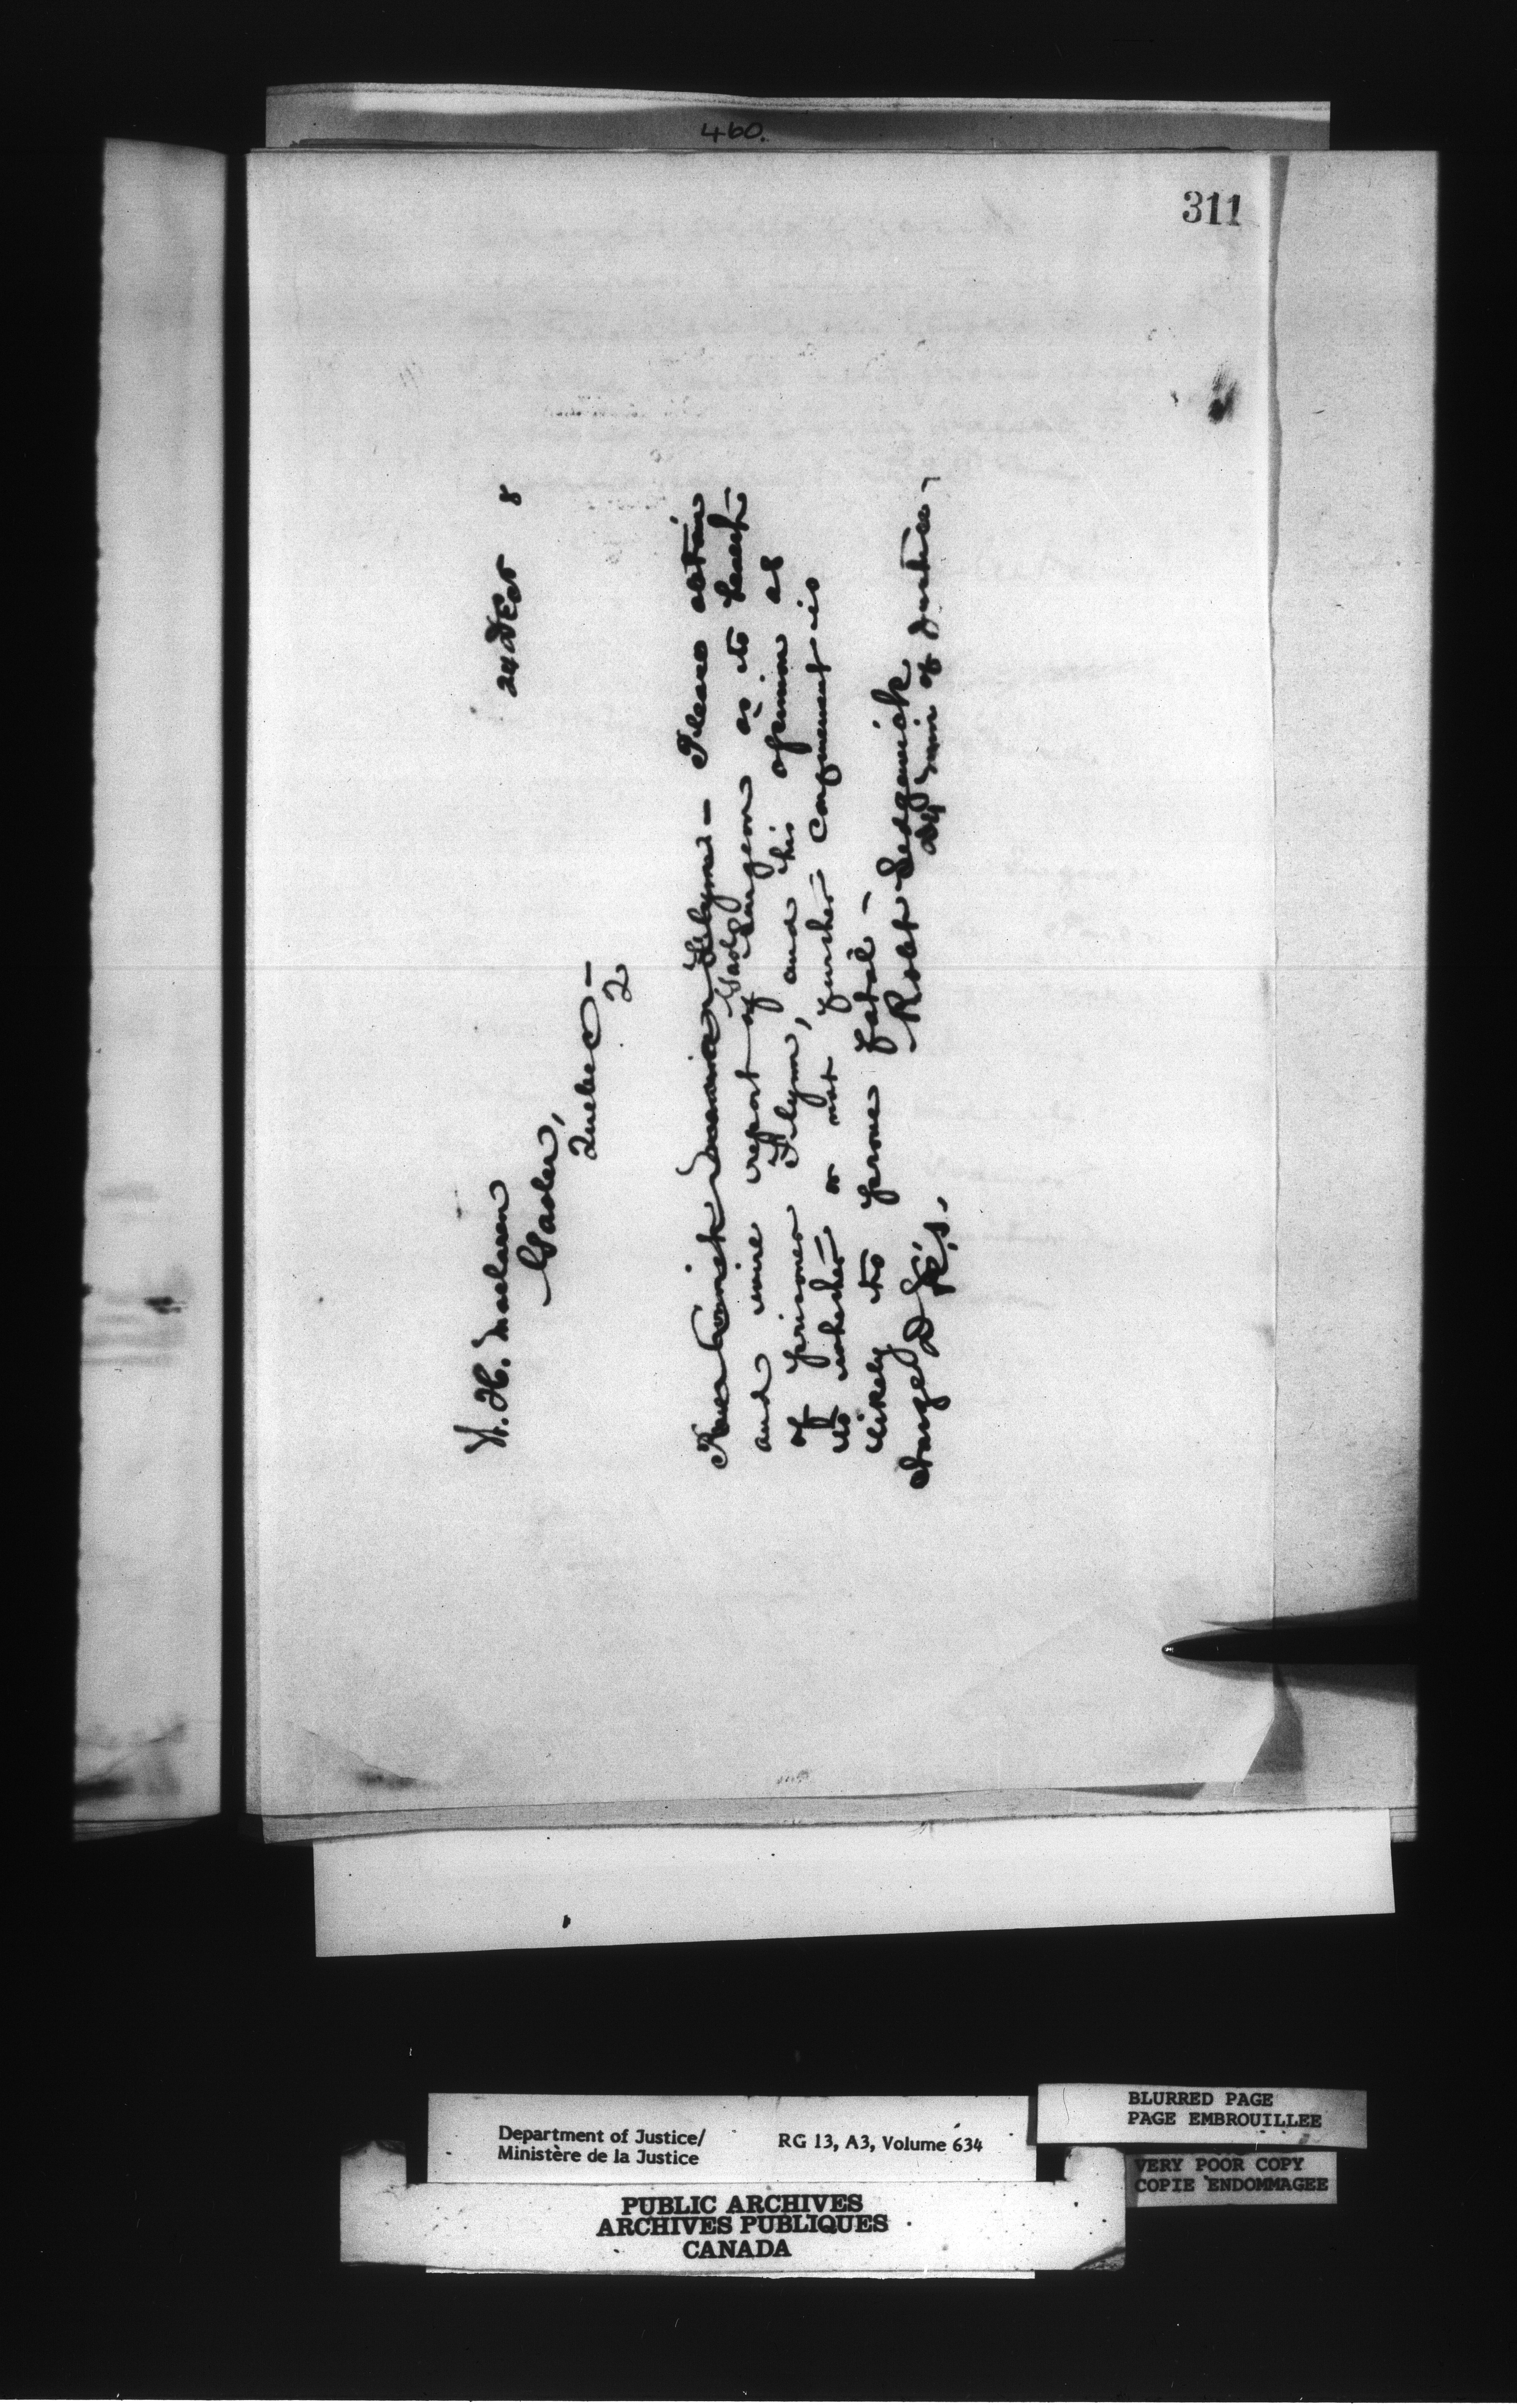 460.
311
24 Dec 8
W. H. Maclaren
Gaoler,
Quebec —
2
Flynn — Please obtain
and wire report of Gaol Surgeon as to health
of prisoner Flynn, and his opinion as
to whether or not further confinement is
likely to prove fatal —
Robt Sedgewick
Dy Min of Justice
Charge D.
BLURRED PAGE
PAGE EMBROUILLEE
Department of Justice/
Ministère de la Justice
RG 13, A3, Volume 634
VERY POOR COPY
COPIE ENDOMMAGEE
PUBLIC ARCHIVES
ARCHIVES PUBLIQUES
CANADA